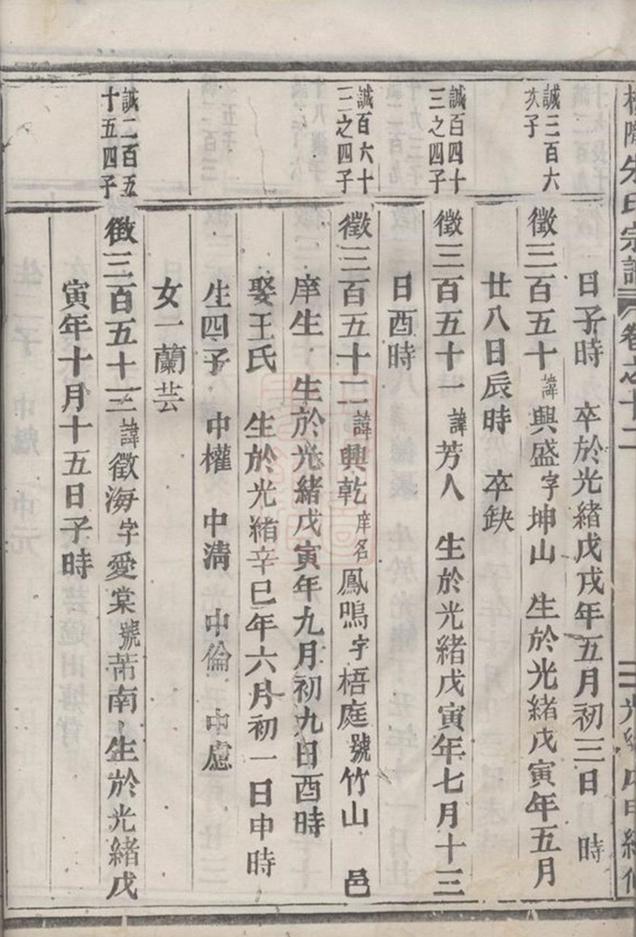 朱氏宗譜 卷之十二
日子時 卒於光緒戊戌年五月初三日 時
誠三百六
亥子
徵三百五十諱興盛字坤山 生於光緒戊寅年五月
廿八日辰時 卒缺
誠百四十
三之四子
徵三百五十一諱芳人 生於光緒戊寅年七月十三
日酉時
誠百六十
三之四子
徵三百五十二諱興乾庠名鳳鳴字梧庭號竹山 邑
庠生 生於光緒戊寅年九月初九日酉時
娶王氏 生於光緒辛巳年六月初一日申時
生四子 中權 中清 中倫 中慮
女一蘭芸
誠二百五
十五四子
徵三百五十三諱徵海字愛棠號芾南 生於光緒戊
寅年十月十五日子時